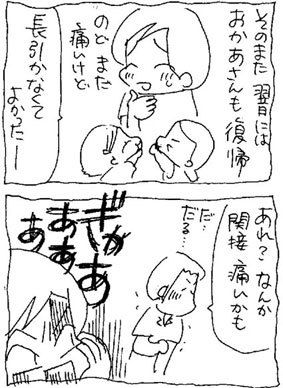 そのまた 翌日には
おかあさんも 復帰
のど まだ
痛いけど
長引かなくて
よかったー
あれ？なんか
関接 痛いかも
だ…
だる…
ぎゃ
ああ
ああ
あ